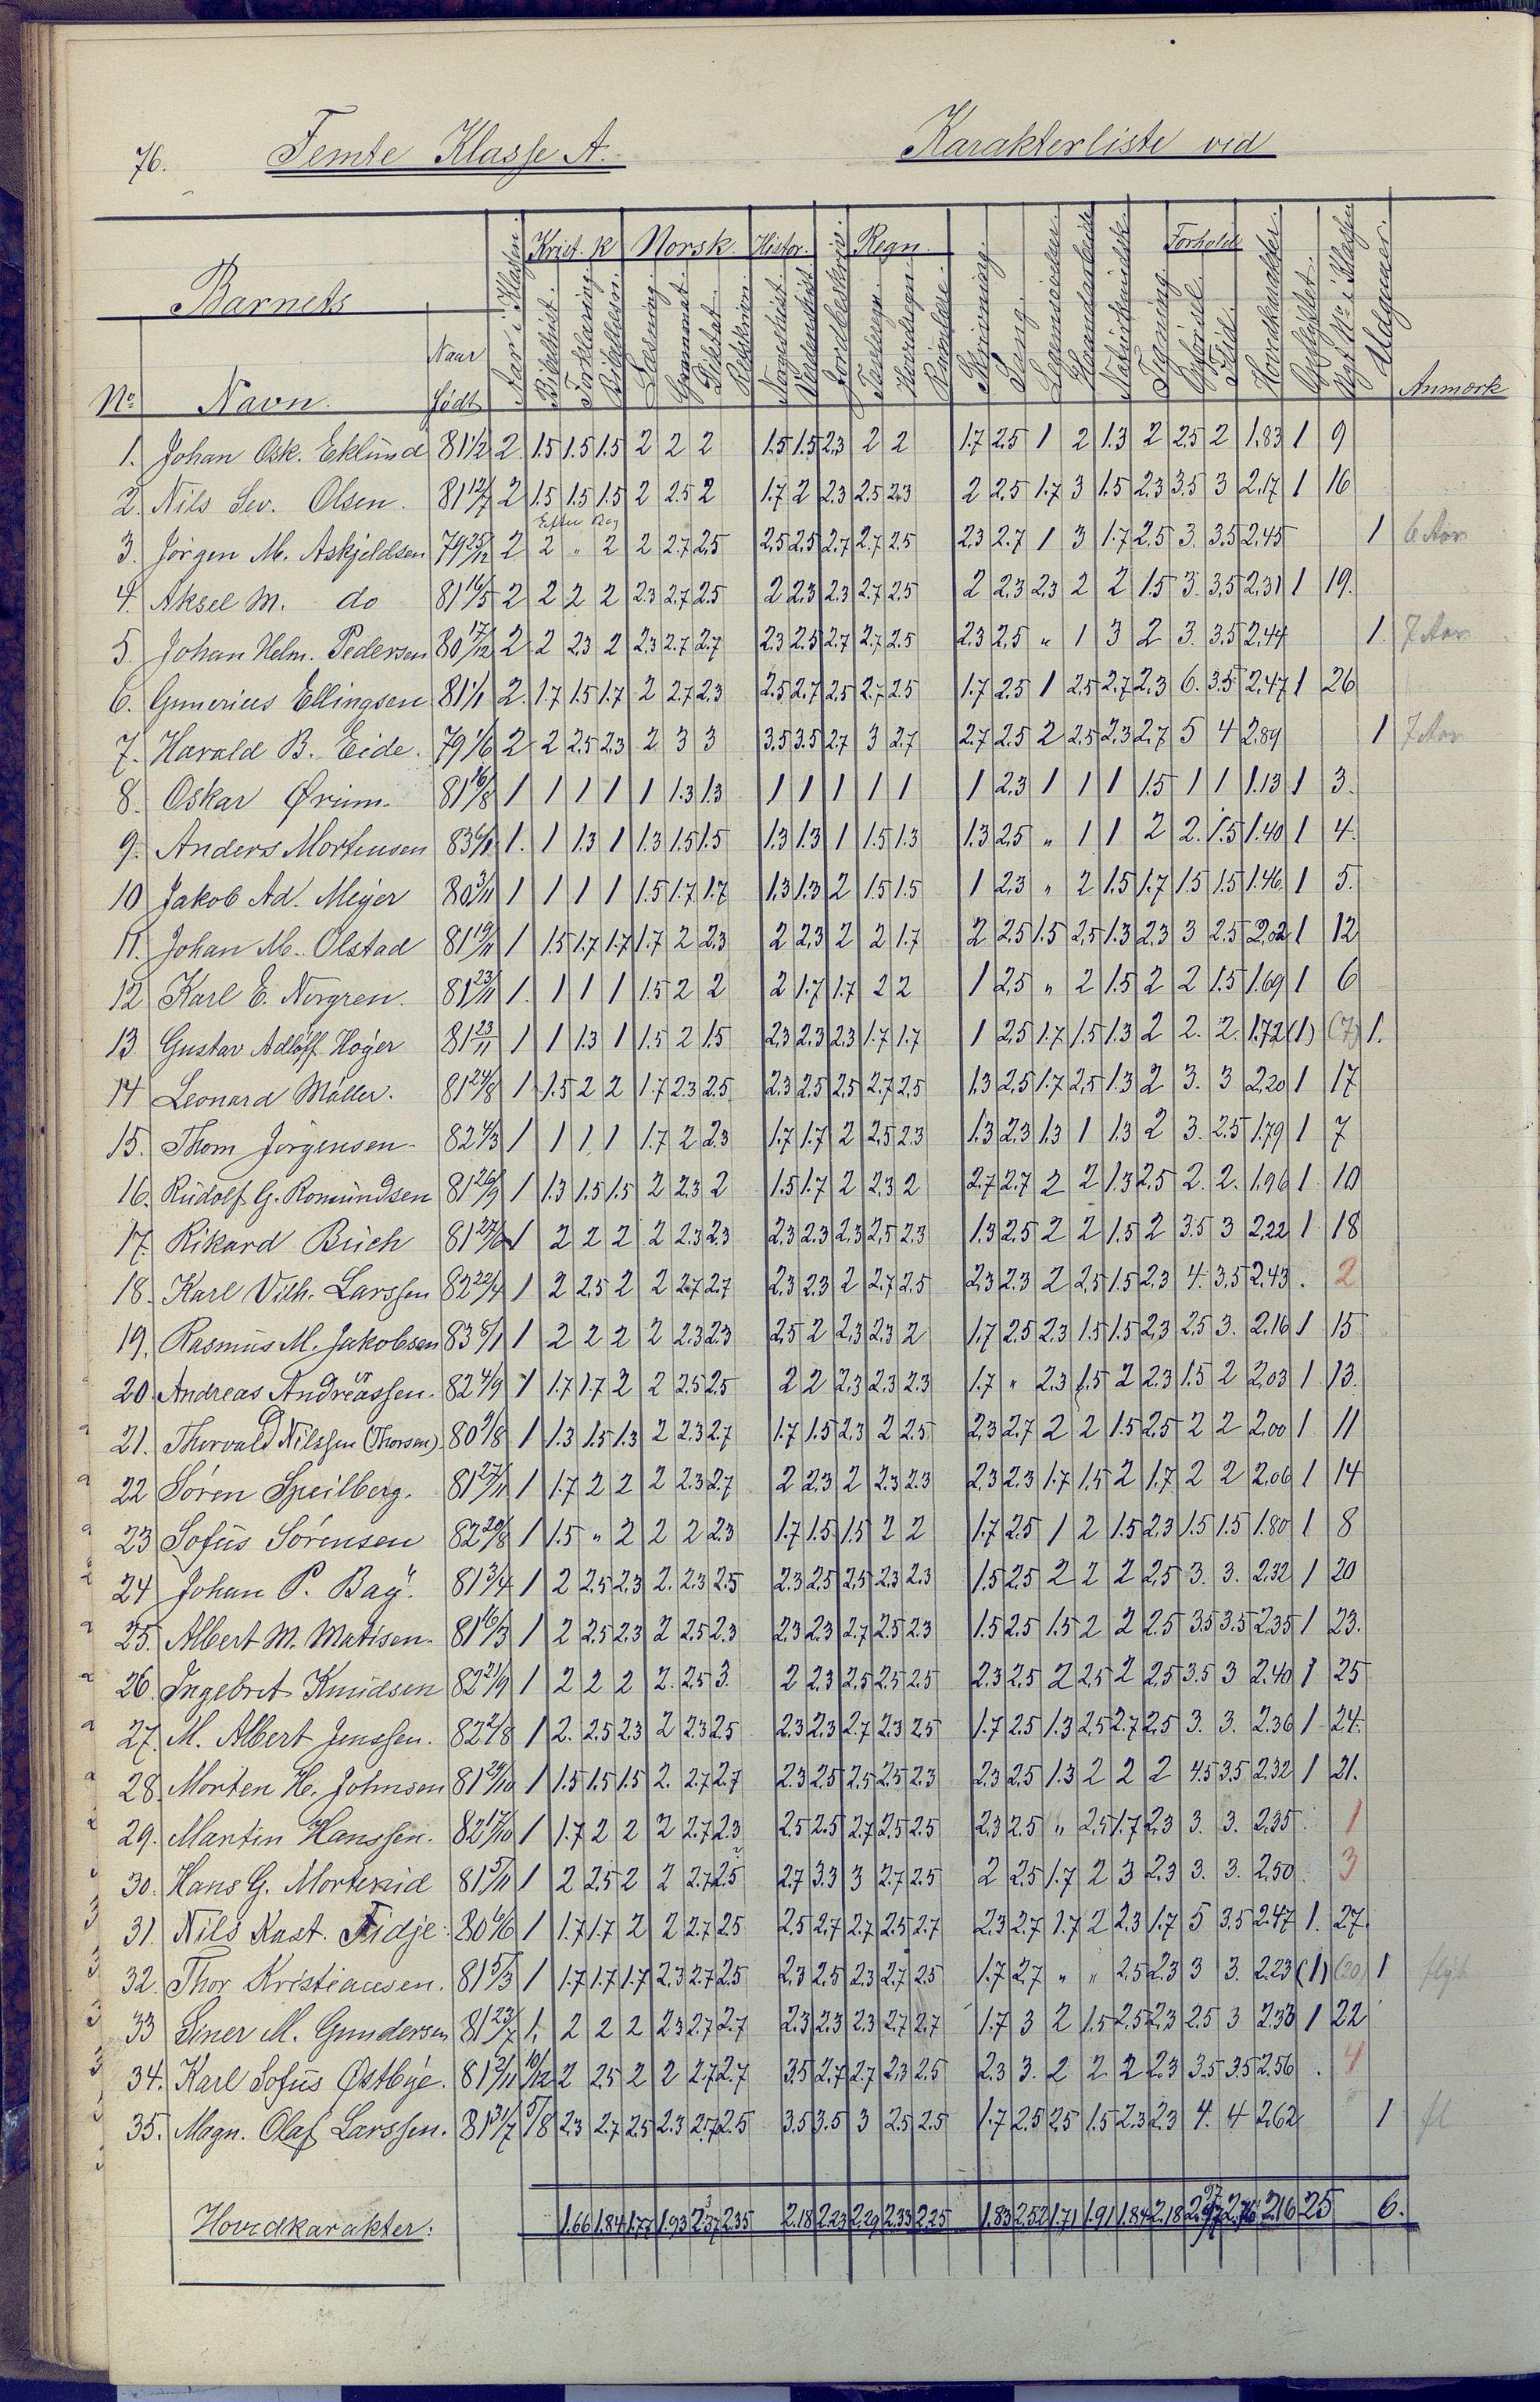 76. Femte Klasse A. Karakterliste vid
Krist. k Norsk. Histor. Regn. Forhold
Barnets
Aar i Klassen Bibelhist. Forklaring Læsning Grammat. Diktat Norgeshist. Verdenshist. Jordbeskriv. Tavleregn. Hovedregn. Skrivning. Sang. Haandarbeide Tegning Opførsel Flid Hovedkarakter. Opflyttet. Udgaaet.
No. Navn. Naar Født Anmærk
1. Johan Osk. Eklund 81 1/2 2 1.5 1.5 1.5 2 2 2 1.5 1.5 2.3 2 2 1.7 2.5 1 2 1.3 2 2.5 2 1.83 1 9
2. Nils Sev. Olsen. 81 12/7 2 1.5 1.5 1.5 2 2.5 2 1.7 2 2.3 2.5 2.3 2 2.5 1.7 3 1.5 2.3 3.5 3 2.17 1 16
3. Jörgen M. Askjeldsen 79 25/12 2 2 " 2 2 2.7 2.5 2.5 2.5 2.7 2.7 2.5 2.3 2.7 1 3 1.7 2.5 3. 3.5 2.45 1 6 Aar
4. Aksel M. do 81 16/5 2 2 2 2 2.3 2.7 2.5 2 2.3 2.3 2.7 2.5 2 2.3 2.3 2 2 1.5 3. 3.5 2.31 1 19.
5. Johan Helm. Pedersen 80 17/12 2 2 2.3 2 2.3 2.7 2.7 2.3 2.5 2.7 2.7 2.5 2.3 2.5 " 1 3 2 3. 3.5 2.44 1. 7 Aar
6. Gunerius Ellingsen 81 1/1 2. 1.7 1.5 1.7 2 2.7 2.3 2.5 2.7 2.5 2.7 2.5 1.7 2.5 1 2.5 2.7 2.3 6. 3.5 2.47 1 26
7. Harald B. Eide. 79 1/6 2 2 2.5 2.3 2 3 3 3.5 3.5 2.7 3 2.7 2.7 2.5 2 2.5 2.3 2.7 5 4 2.89 1 7 Aar
8. Oskar Ørum. 81 16/8 1 1 1 1 1 1.3 1.3 1 1 1 1 1 1 2.3 1 1 1 1.5 1 1 1.13 1 3.
9. Anders Mortensen 83 6/1 1. 1 1.3 1 1.3 1.5 1.5 1.3 1.3 1 1.5 1.3 1.3 2.5 " 1 1 2 2. 1.5 1.40 1 4.
10 Jakob Ad. Meyer 80 3/11 1 1 1 1 1.5 1.7 1.7 1.3 1.3 2 1.5 1.5 1 2.3 " 2 1.5 1.7 1.5 1.5 1.46. 1 5.
11. Johan M. Olstad 81 19/11 1 1.5 1.7 1.7 1.7 2 2.3 2 2.3 2 2 1.7 2 2.5 1.5 2.5 1.3 2.3 3 2.5 2.02 1 12
12 Karl E. Norgren. 81 23/11 1. 1 1 1 1.5 2 2 2 1.7 1.7 2 2 1 2.5 " 2 1.5 2 2 1.5 1.69 1 6
13 Gustav Adloff Höger 81 23/11 1 1 1.3 1 1.5 2 1.5 2.3 2.3 2.3 1.7 1.7 1 2.5 1.7 1.5 1.3 2 2. 2. 1.72 (1) (7) 1.
14 Leonard Möller. 81 24/8 1 1.5 2 2 1.7 2.3 2.5 2.3 2.5 2.5 2.7 2.5 1.3 2.5 1.7 2.5 1.3 2 3. 3 2.20 1 17
15. Thom Jörgensen. 82 4/3 1 1 1 1 1.7 2 2.3 1.7 1.7 2 2.5 2.3 1.3 2.3 1.3 1 1.3 2 3. 2.5 1.79 1 7
16. Rudolf G. Romundsen 81 26/9 1 1.3 1.5 1.5 2 2.3 2 1.5 1.7 2 2.3 2 2.7 2.7 2 2 1.3 2.5 2. 2. 1.96 1 10
17. Rikard Buch 81 27/6 1 2 2 2 2 2.3 2.3 2.3 2.3 2.3 2.5 2.3 1.3 2.5 2 2 1.5 2 3.5 3 2.22 1 18
18. Karl Vilh. Larssen 82 22/4 1 2 2.5 2 2 2.7 2.7 2.3 2.3 2 2.7 2.5 2.3 2.3 2 2.5 1.5 2.3 4. 3.5 2.43 . 2
19. Rasmus M. Jakobsen 83 5/1 1 2 2 2 2 2.3 2.3 2.5 2 2.3 2.3 2 1.7 2.5 2.3 1.5 1.5 2.3 2.5 3. 2.16 1 15
20. Andreas Andreassen. 82 4/9 1 1.7 1.7 2 2 2.5 2.5 2 2 2.3 2.3 2.3 1.7 " 2.3 1.5 2 2.3 1.5 2 2.03 1 13.
21. Thorvald Nilssen (Thorsen) 80 9/8 1 1.3 1.5 1.3 2 2.3 2.7 1.7 1.5 2.3 2 2.5 2.3 2.7 2 2 1.5 2.5 2 2 2.00 1 11
22 Sören Speilberg. 81 27/11 1 1.7 2 2 2 2.3 2.7 2 2.3 2 2.3 2.3 2.3 2.3 1.7 1.5 2 1.7 2 2 2.06 1 14
23 Sofus Sörensen 82 20/8 1 1.5 " 2 2 2 2.3 1.7 1.5 1.5 2 2 1.7 2.5 1 2 1.5 2.3 1.5 1.5 1.80 1 8
24 Johan P. Bay. 81 3/4 1 2 2.5 2.3 2. 2.3 2.5 2.3 2.5 2.5 2.3 2.3 1.5 2.5 2 2 2 2.5 3. 3. 2.32 1 20
25. Albert M. Matisen. 81 16/3 1 2 2.5 2.3 2 2.5 2.3 2.3 2.3 2.7 2.5 2.3 1.5 2.5 1.5 2 2 2.5 3.5 3.5 2.35 1 23.
26. Ingebret Knudsen 82 21/9 1 2 2 2 2. 2.5 3. 2 2.3 2.5 2.5 2.5 2.3 2.5 2 2.5 2 2.5 3.5 3 2.40 1 25
27. M. Albert Jenssen. 82 2/8 1 2. 2.5 2.3 2 2.3 2.5 2.3 2.3 2.7 2.3 2.5 1.7 2.5 1.3 2.5 2.7 2.5 3. 3. 2.36 1 24.
28. Morten H. Johnsen 81 29/10 1 1.5 1.5 1.5 2. 2.7 2.7 2.3 2.5 2.5 2.5 2.3 2.3 2.5 1.3 2 2 2 4.5 3.5 2.32 1 21.
29. Martin Hanssen. 82 17/10 1 1.7 2 2 2 2.7 2.3 2.5 2.5 2.7 2.5 2.5 2.3 2.5 " 2.5 1.7 2.3 3. 3. 2.35 . 1
30. Hans G. Mortenid 81 5/11 1 2 2.5 2 2 2.7 2.5 2.7 3.3 3 2.7 2.5 2 2.5 1.7 2 3 2.3 3. 3. 2.50 . 3
31. Nils Kast. Fidje. 80 6/6 1 1.7 1.7 2 2 2.7 2.5 2.5 2.7 2.7 2.5 2.7 2.3 2.7 1.7 2 2.3 1.7 5 3.5 2.47 1. 27
32. Thor Kristiansen. 81 5/3 1 1.7 1.7 1.7 2.3 2.7 2.5 2.3 2.5 2.3 2.7 2.5 1.7 2.7 " " 2.5 2.3 3 3. 2.23 (1) (20) 1
33 Einer M. Gundersen 81 23/7 1. 2 2 2 2.3 2.7 2.7 2.3 2.3 2.3 2.7 2.7 1.7 3 2 1.5 2.5 2.3 2.5 3 2.33 1 22
34. Karl Sofus Østbye. 81 2/11 10/12 2 2.5 2 2 2.7 2.7 3.5 2.7 2.7 2.3 2.5 2.3 3. 2 2 2 2.3 3.5 3.5 2.56 . 4
35. Magn. Olaf Larssen. 81 31/7 5/8 2.3 2.7 2.5 2.3 2.7 2.5 3.5 3.5 3 2.5 2.5 1.7 2.5 2.5 1.5 2.3 2.3 4. 4 2.62 1 fl
Hovedkarakter: 1.66 1.84 1.77 1.93 2.37 2.35 2.18 2.23 2.29 2.33 2.25 1.83 2.52 1.71 1.91 1.84 2.18 2.16 25 6.